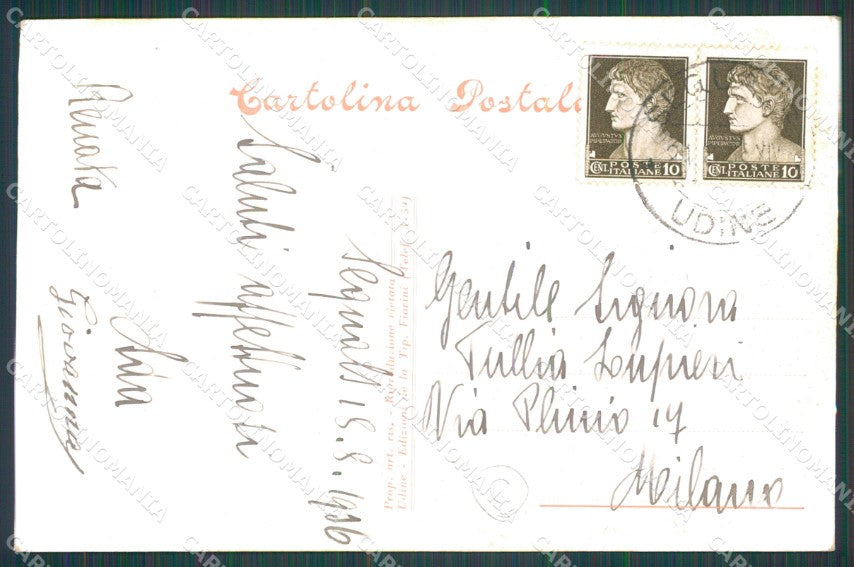 Cartolina Postale
AVGVSTVS
IMPERATOR
POSTE
CENT. ITALIANE 10
AVGVSTVS
IMPERATOR
POSTE
CENT. ITALIANE 10
UDINE
Renata
Saluti affettuosi
Ada
Giovanna
Sequals 18.8.1936
Prop. art. ris. - Riproduzione vietata
Udine - Edizione della Tip. Fiorini (Telef.
Gentile Signora
Tullia Lupieri
Via Plinio 17
Milano
CARTOLINOMANIA